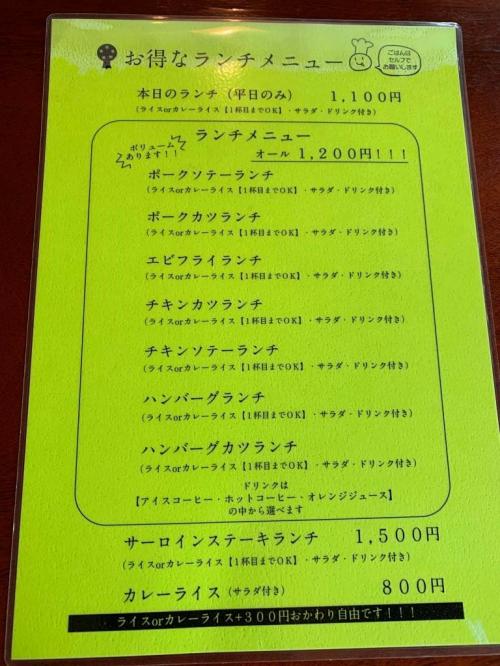 お得なランチメニュー
ごはんは
セルフで
お願いします
本日のランチ（平日のみ） 1,100円
（ライスorカレーライス【1杯目までOK】・サラダ・ドリンク付き）
ランチメニュー
ボリューム
あります！！
オール 1,200円！！！
ポークソテーランチ
（ライスorカレーライス【1杯目までOK】・サラダ・ドリンク付き）
ポークカツランチ
（ライスorカレーライス【1杯目までOK】・サラダ・ドリンク付き）
エビフライランチ
（ライスorカレーライス【1杯目までOK】・サラダ・ドリンク付き）
チキンカツランチ
（ライスorカレーライス【1杯目までOK】・サラダ・ドリンク付き）
チキンソテーランチ
（ライスorカレーライス【1杯目までOK】・サラダ・ドリンク付き）
ハンバーグランチ
（ライスorカレーライス【1杯目までOK】・サラダ・ドリンク付き）
ハンバーグカツランチ
（ライスorカレーライス【1杯目までOK】・サラダ・ドリンク付き）
ドリンクは
【アイスコーヒー・ホットコーヒー・オレンジジュース】
の中から選べます
サーロインステーキランチ 1,500円
（ライスorカレーライス【1杯目までOK】・サラダ・ドリンク付き）
カレーライス（サラダ付き） 800円
ライスorカレーライス+300円おかわり自由です！！！